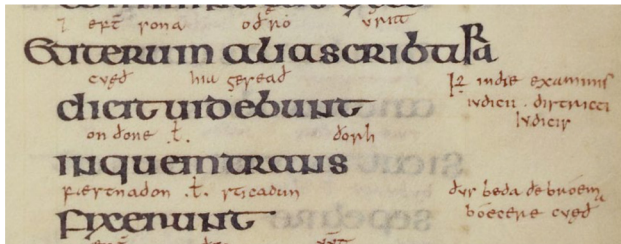 ⁊ eft sona oðro urit
Et iterum alia scribtura
cueð hia geseað
dicit uidebunt
on done ł ðorh
in quem trans
fixerunt
.i. in die examinis
iudicii districti
iudicis
ðus beda ðe broema
boecere cueð